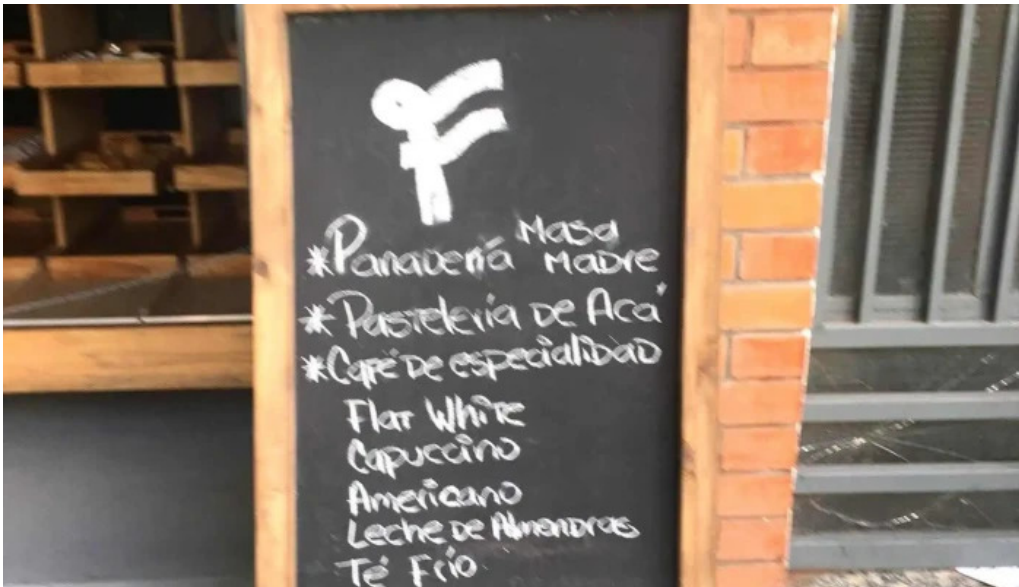 *Panadería Masa Madre
*Pastelería de Acá
*Café de especialidad
Flat White
Capuccino
Americano
Leche de Almendras
Té Frío